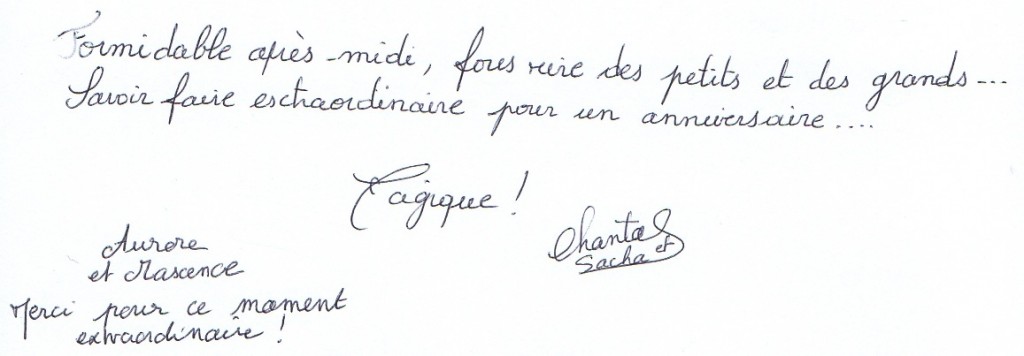 Formidable après-midi, fous rire des petits et des grands...
Savoir faire eschaordinaire pour un anniversaire....
Magique !
Chantal et
Sacha
Aurore
et Maxence
Merci pour ce moment
extraordinaire !